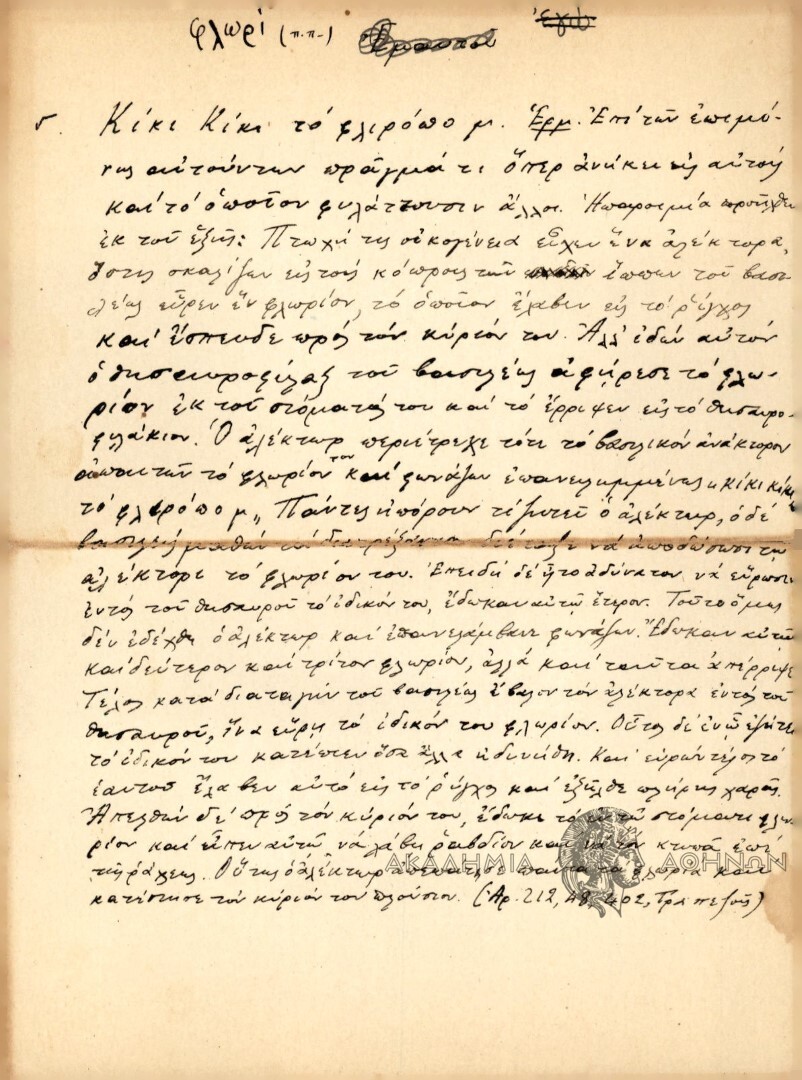 φλωρί (π.π-) ἐγώ
5. Κίκι Κίκι τό φλιρόπο μ. Ἑρμ. Ἐπί τῶν ἐπιμό-
νως αἰτούντων πρᾶγμά τι ὅπερ ἀνήκει εἰς αὐτούς
καί τό ὁποῖον φυλάττουσιν ἄλλοι. Ἡ παροιμία προῆλθε
ἐκ τοῦ ἑξῆς: Πτωχή τις οἰκογένεια εἶχεν ἕνα ἀλέκτορα,
ὅστις σκαλίζων εἰς τούς κόπρους τῶν ἵππων τοῦ βασι-
λέως εὗρεν ἕν φλωρίον, τό ὁποῖον ἔλαβεν εἰς τό ῥύγχος
καί ἔσπευδε πρός τόν κύριόν του. Ἀλλ' ἰδών αὐτόν
ὁ θησαυροφύλαξ τοῦ βασιλέως ἀφῄρεσε τό φλω-
ρίον ἐκ τοῦ στόματός του καί τό ἔρριψεν εἰς τό θησαυρο-
φυλάκιον. Ὁ ἀλέκτωρ περιέτρεχε τότε τό βασιλικόν ἀνάκτορον
ἀπαιτῶν τό φλωρίον του καί φωνάζων ἐπανειλημμένως „κίκι κίκι
τό φλιρόπο μ„ Πάντες ἠπόρουν τί ζητεῖ ὁ ἀλέκτωρ, ὁ δέ
βασιλεύς μαθών τά διατρέξαντα διέταξε νά ἀποδώσωσι τῷ
ἀλέκτορι τό φλωρίον του. Ἐπειδή δέ ἦτο ἀδύνατον νά εὕρωσιν
ἐντός τοῦ θησαυροῦ τό ἰδικόν του, ἔδωκαν αὐτῷ ἕτερον. Τοῦτο ὅμως
δέν ἐδέχθη ὁ ἀλέκτωρ καί ἐπανελάμβανε φωνάζων. Ἔδωκαν αὐτῷ
καί δεύτερον καί τρίτον φλωρίον, ἀλλά καί ταῦτα ἀπέρριψε
Τέλος κατά διαταγήν τοῦ βασιλέως ἔβαλον τόν ἀλέκτορα ἐντός τοῦ
θησαυροῦ, ἵνα εὕρῃ τό ἰδικόν του φλωρίον. Οὗτος δέ ἐνῷ ἐζήτει
τό ἰδικόν του κατέπιεν ὅσα ἄλλα ἠδυνήθη. Καί εὑρών τέλος τό
ἑαυτοῦ ἔλαβεν αὐτό εἰς τό ῥύγχος καί ἐξῆλθε πλήρης χαρᾶς.
Ἀπελθών δέ πρός τόν κύριόν του, ἔδωκε τό ἐν τῷ στόματι φλω-
ρίον καί εἶπεν αὐτῷ νά λάβῃ ῥαβδίον καί νά τόν κτυπᾷ ἐπί
τῆς ῥάχεως. Οὕτως ὁ ἀλέκτωρ ἀπεπάτησε πάντα τά φλωρία καί
κατέστησε τόν κύριόν του πλούσιον. (Ἀρ. 212, 48, 402, Τραπεζοῦς)
ΑΚΑΔΗΜΙΑ ΑΘΗΝΩΝ